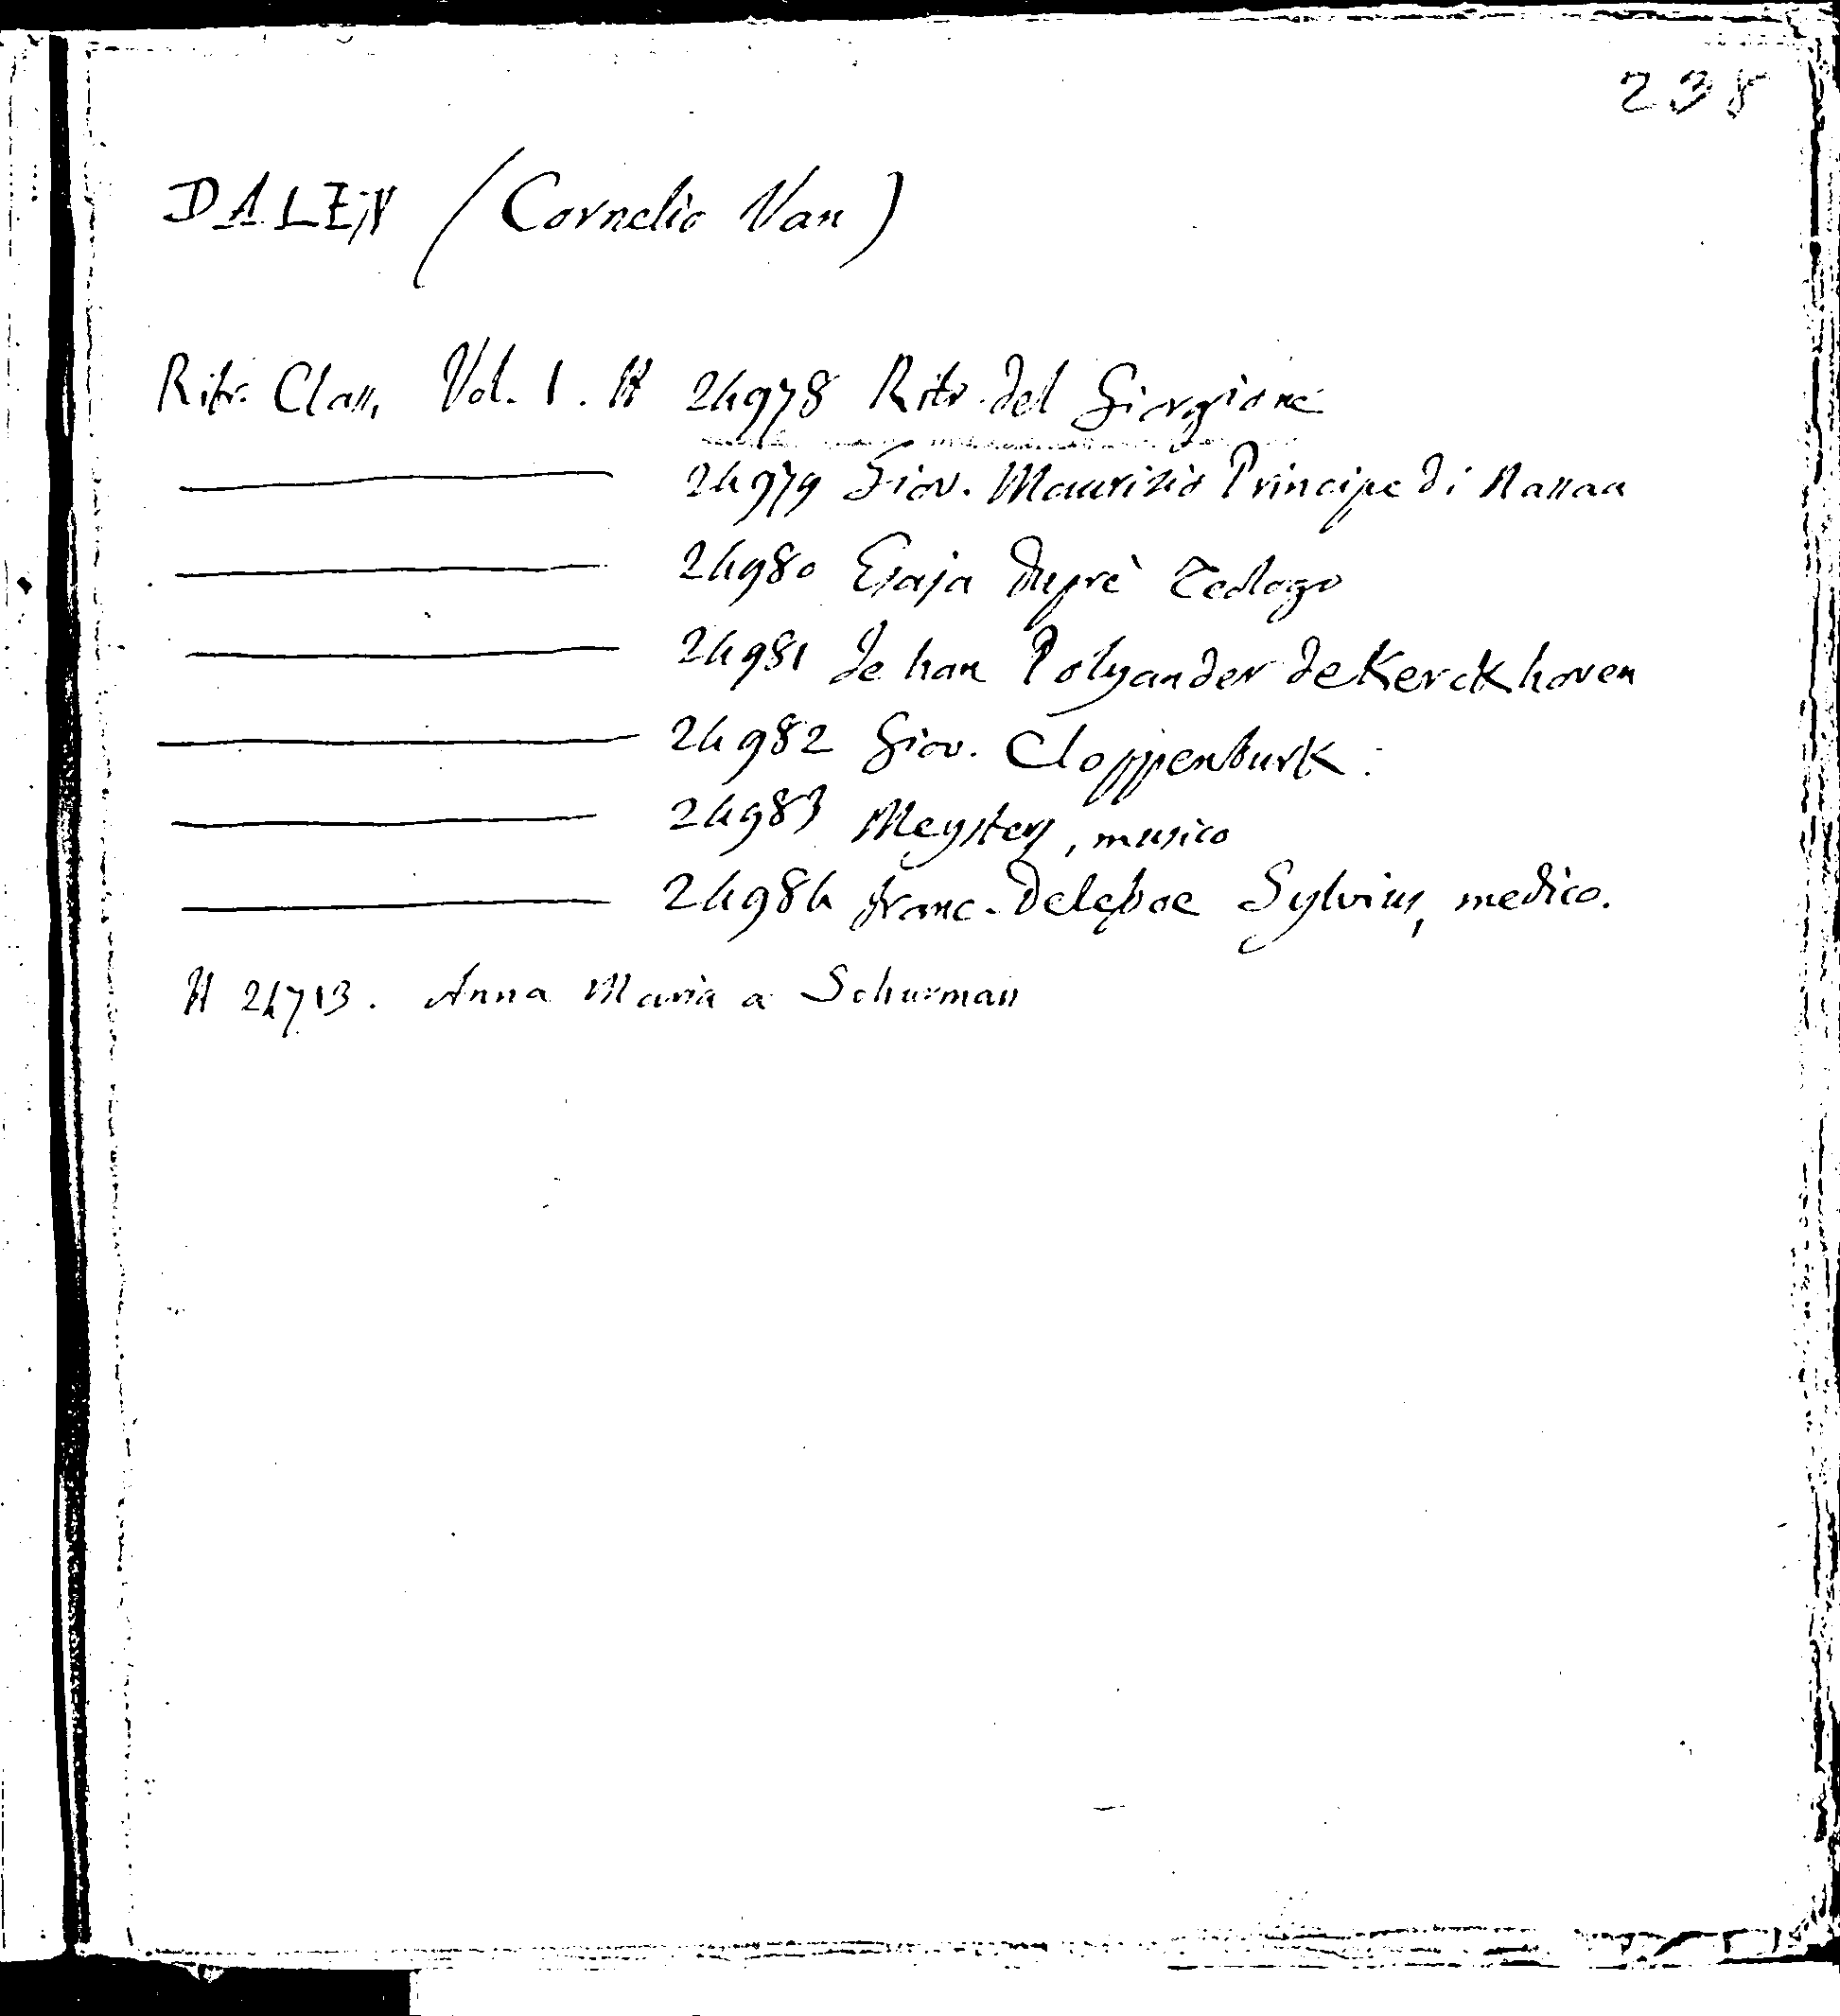 238
DALEN (Cornelio Van)
Ritr. Class. Vol. 1. N 24978 Ritr. del Giorgione
24979 Giov. Maurizio Principe di Nassau
24980 Esaja Duprè Teologo
24981 Jehan Polyander de Kerckhoven
24982 Giov. Cloppenburk.
24983 Meysters, musico
24984 Franc. Deleboe Sylvius, medico.
N 24713. Anna Maria a Schurman